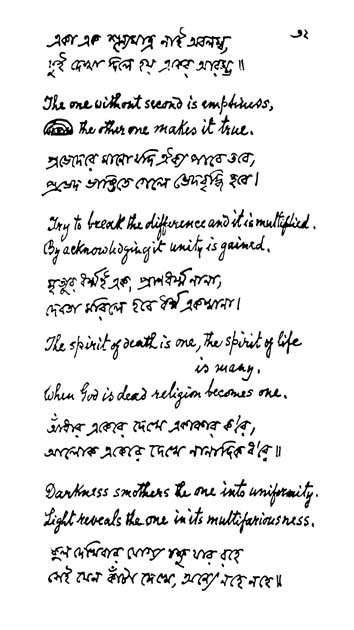 ৩২
একা এক শূন্যমাত্র নাই অবলম্ব,
দুই দেখা দিলে হয় একের আরম্ভ॥
The one without second is emptiness,
the other one makes it true.
প্রভেদেরে মানো যদি ঐক্য পাবে তবে,
প্রভেদ ভাঙিতে গেলে ভেদবৃদ্ধি হবে।
Try to break the difference and it is multiplied.
By acknowledging it unity is gained.
মৃত্যুর ধর্ম্মই এক, প্রাণধর্ম্ম নানা,
দেবতা মরিলে হবে ধর্ম্ম একখানা।
The spirit of death is one, the spirit of life
is many.
When God is dead religion becomes one.
আঁধার একেরে দেখে একাকার ক'রে,
আলোক একেরে দেখে নানাদিক ধ'রে॥
Darkness smothers the one into uniformity.
Light reveals the one in its multifariousness.
ফুল দেখিবার যোগ্য চক্ষু যার রহে
সেই যেন কাঁটা দেখে, অন্যে নহে নহে॥